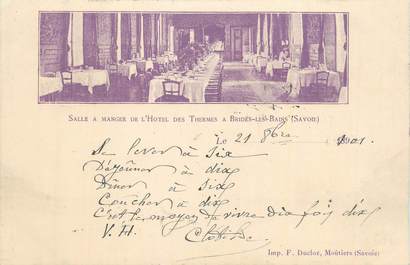 Salle a manger de l'Hotel des Thermes a Brides-les-Bains (Savoie)
Le 21 8bre 1901
Se lever à six
Déjeûner à dix
Dîner à six
Coucher à dix
C'est le moyen de vivre dix fois dix
V. H.
Clotilde
Imp. F. Ducloz, Moûtiers (Savoie)